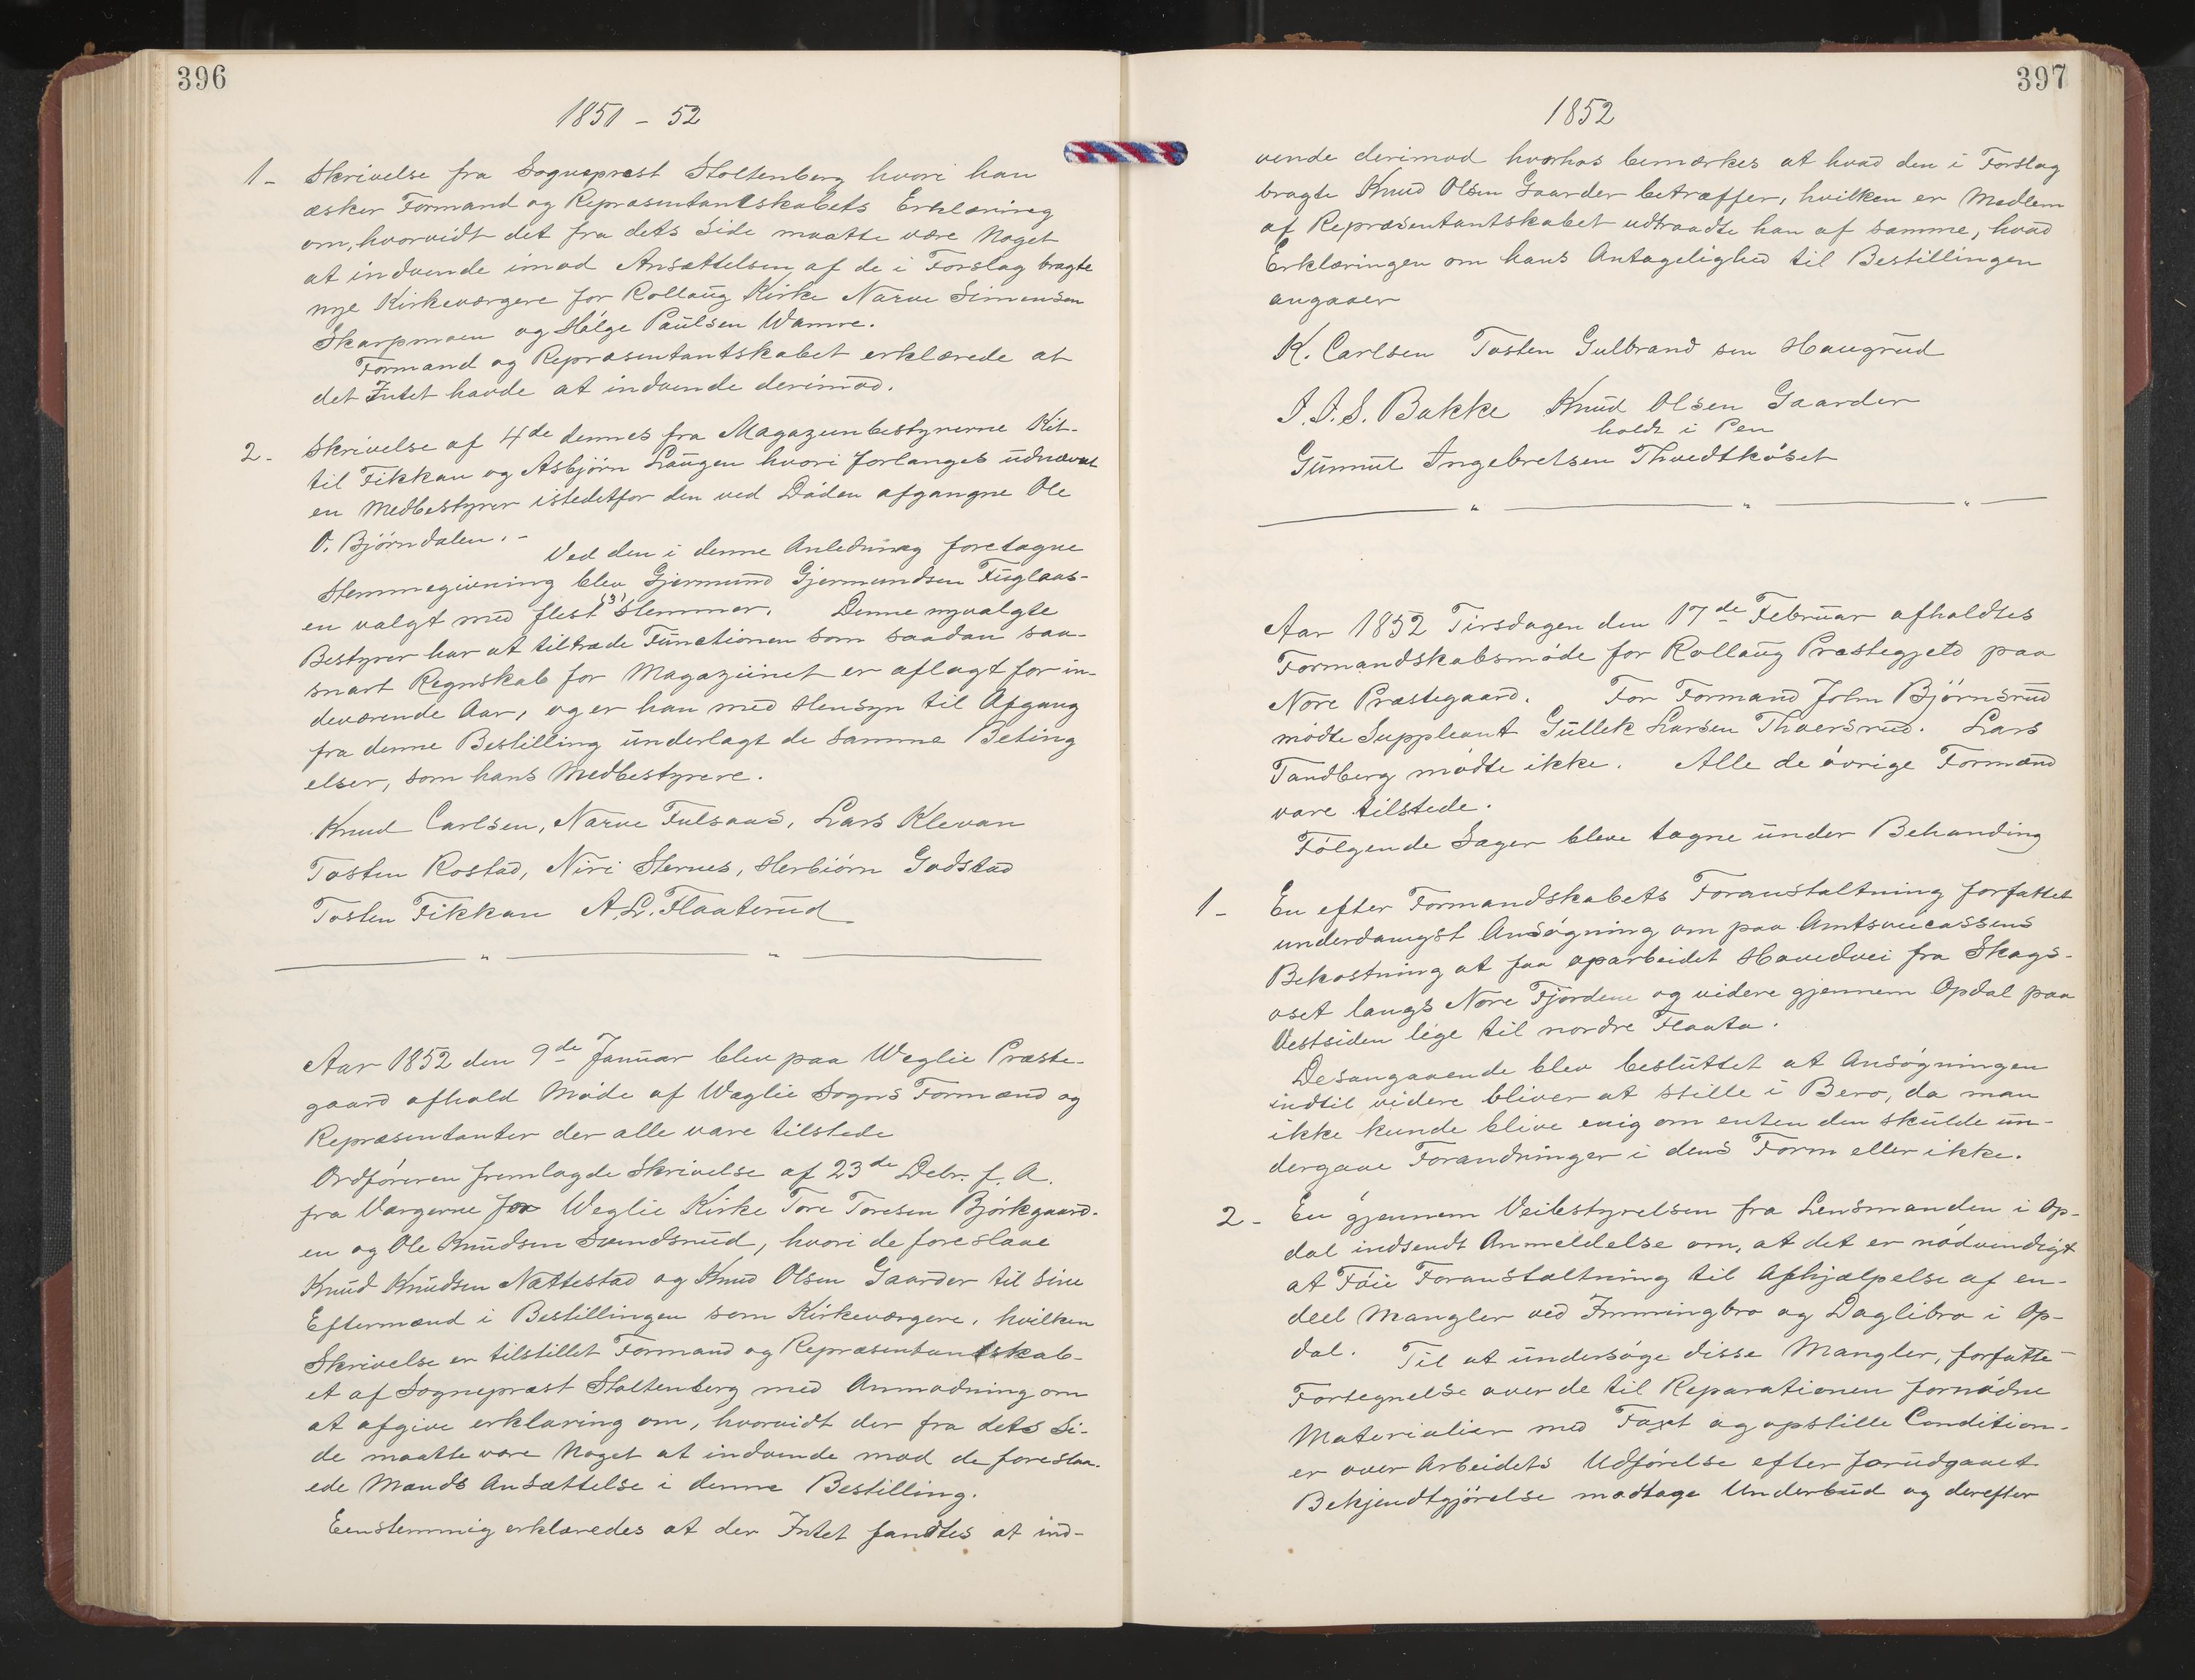 396
1851 – 52
1 – Skrivelse fra Sogneprest Stoltenberg hvori han
æsker Formand og Repræsentantskabets Erklæring
om, hvorvidt det fra dets Side maatte være Noget
at indvende imod Ansættelsen af de i Forslag bragte
nye Kirkeværgere for Rollaug Kirke Narve Simensen
Skarpmoen og Hølge Paulsen Wamre.
Formand og Repræsentantskabet erklærede at
det Intet havde at indvende derimod.
2 – Skrivelse af 4de dennes fra Magazinbestyrerne Kit-
til Fikkan og Asbjørn Laugen hvori forlanges udnævnt
en Medbestyrer istedetfor den ved Døden afgangne Ole
O. Bjørndalen. –
Ved den i denne Anledning foretagne
Stemmegivning blev Gjermund Gjermundsen Fuglaas-
en valgt med flest (3) Stemmer. Denne nyvalgte
Bestyrer har at tiltræde Functionen som saadan saa-
snart Regnskab for Magazinet er aflagt for in-
deværende Aar, og er han med Hensyn til Afgang
fra denne Bestilling underlagt de samme Beting
elser, som hans Medbestyrere.
Knud Carlsen, Narve Fulsaas, Lars Klevan
Tosten Rostad, Niri Sternes, Herbiørn Godstad
Tosten Fikkan A. L. Flaaterud
Aar 1852 den 9de Januar blev paa Weglie Præste-
gaard afhold Møde af Weglie Sogns Formænd og
Repræsentanter der alle vare tilstede
Ordføreren fremlagde Skrivelse af 23de Debr. f. A.
fra Værgerne for Weglie Kirke Tore Toresen Bjørkgaard-
en og Ole Knudsen Svendsrud, hvori de foreslaae
Knud Knudsen Nættestad og Knud Olsen Gaarder til sine
Eftermænd i Bestillingen som Kirkeværgere, hvilken
Skrivelse er tilstillet Formand og Repræsentantskab-
et af Sogneprest Stoltenberg med Anmodning om
at afgive erklæring om, hvorvidt der fra dets Si-
de maatte være Noget at indvende mod de foreslaa-
ede Mænds Ansættelse i denne Bestilling.
Eenstemmig erklæredes at der Intet fandtes at ind-
397
1852
vende derimod hvorhos bemærkes at hvad den i Forslag
bragte Knud Olsen Gaarder betræffer, hvilken er Medlem
af Repræsentantskabet udtraadte han af samme, hvad
Erklæringen om hans Antagelighed til Bestillingen
angaaer
K. Carlsen Tosten Gulbrand sen Haugrud
J. J. S. Bakke Knud Olsen Gaarder
holdt i Pen
Gunnul Ingebretsen Thvedtkøset
Aar 1852 Tirsdagen den 17de Februar afholdtes
Formandskabsmøde for Rollaug Præstegjeld paa
Nore Præstegaard. For Formand John Bjørnsrud
mødte Suppleant Gullek Larsen Thoersrud. Lars
Tandberg mødte ikke. Alle de øvrige Formænd
vare tilstede.
Følgende Sager bleve tagne under Behanding
1 – En efter Formandskabets Foranstaltning forfattet
underdanigst Ansøgning om paa Amtsveicassens
Bekostning at faa oparbeidet Hovedvei fra Skags-
oset langs Nore Fjordene og videre gjennem Opdal paa
Vestsiden lige til nordre Flaata.
Desangaaende blev besluttet at Ansøgningen
indtil videre bliver at stille i Bero, da man
ikke kunde blive enig om enten den skulde un-
dergaae Forandringer i dens Form eller ikke.
2 – En gjennem Veibestyrelsen fra Lensmanden i Op-
dal indsendt Anmeldelse om, at det er nødvendigt
at Føie Foranstaltning til Afhjælpelse af en-
deel Mangler ved Immingbro og Daglibro i Op-
dal. Til at undersøge disse Mangler, forfatte
Fortegnelse over de til Reparationen fornødne
Materialier med Taxt og opstille Condition-
er over Arbeidets Udførelse efter forudgaaet
Bekjendtgjørelse modtage Underbud og derefter